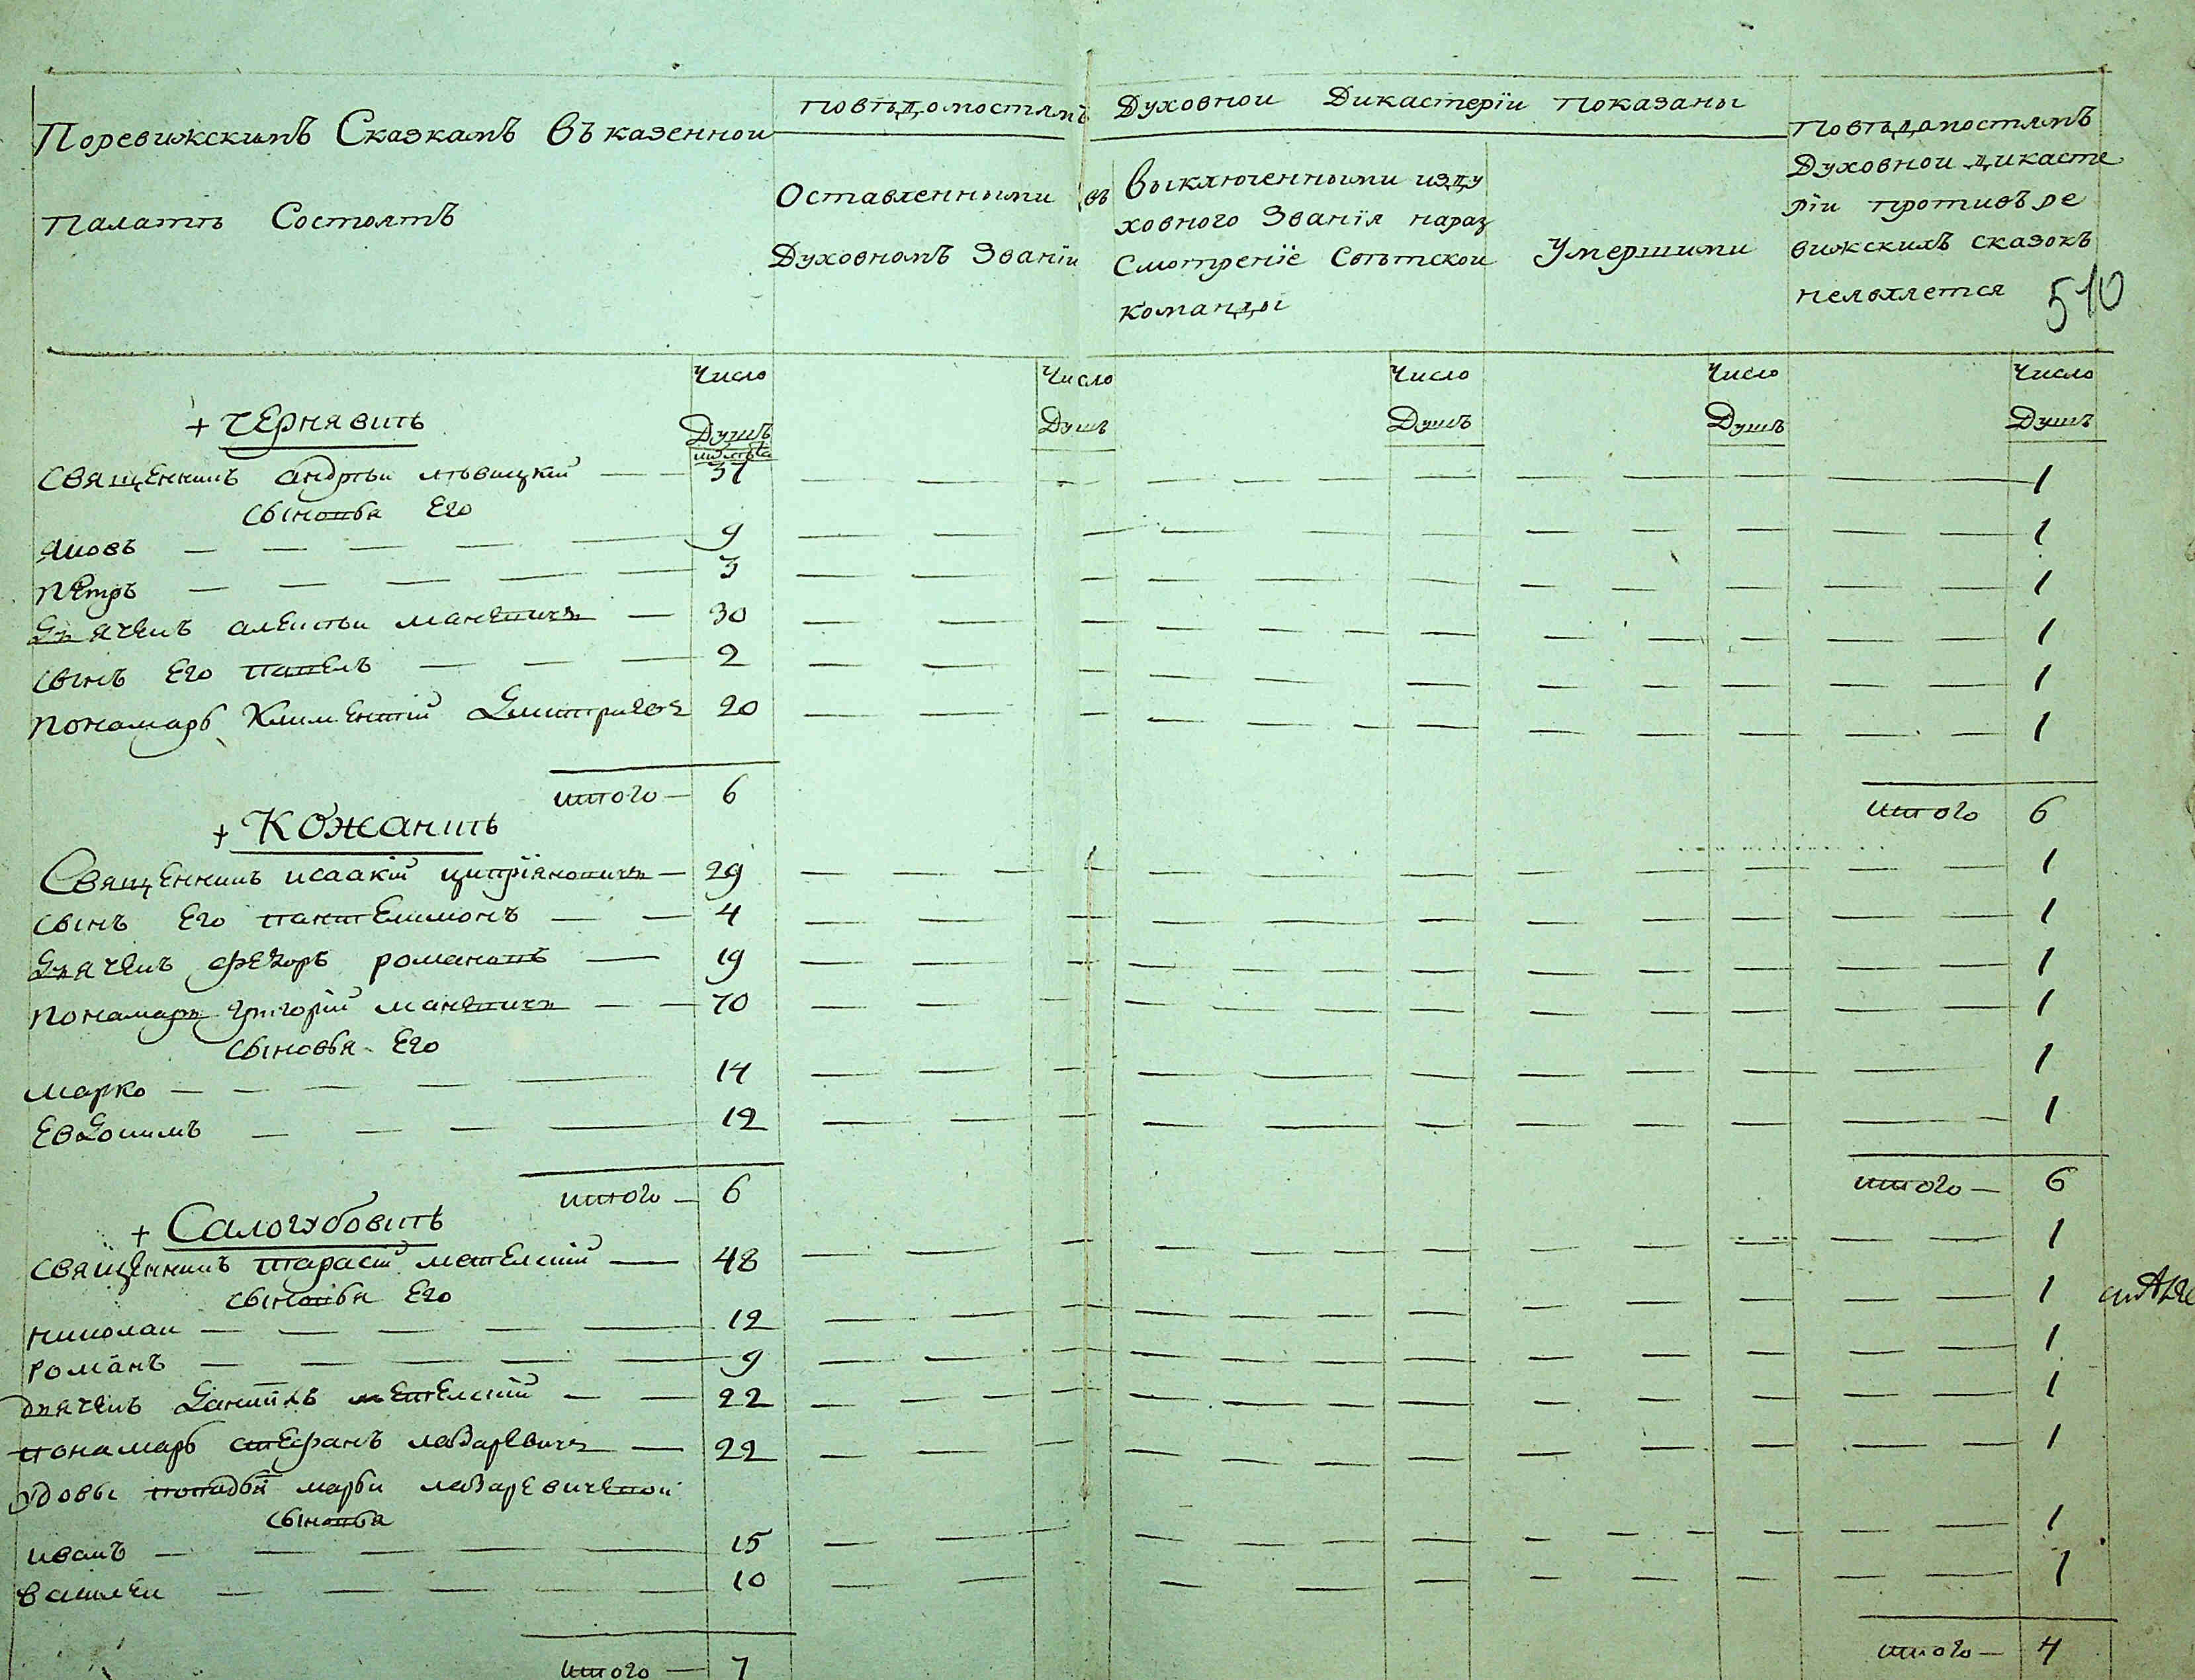 Поревижскимъ Сказкамъ въ казеннои
палатѣ Состоятъ
повѣдомостямъ Духовнои Дикастерїи показаны
Оставленными въ
Духовномъ Званїи
выключенными изду
ховного Званїя нараз
Смотренїе Свѣтскои
команды
Умершими
повѣдомостямъ
Духовнои дикасте
рїи противъ ре
вижскихъ сказокъ
неявляется
510
Число Число Число Число Число
Душъ Душъ Душъ Душъ Душъ
+ чернявить
священникъ андрѣи лѣвицкїй 37 1
сыновья его
яковъ 9 1
петръ 3 1
дьячекъ алексѣи маневичъ 30 1
сынъ его павелъ 2 1
пономарь климентїй дмитричевъ 20 1
итого 6 итого 6
+ Кожанить
Священникъ исаакїй ципрїяновичъ 29 1
сынъ его пантелимонъ 4 1
дьячекъ федоръ романовъ 19 1
пономарь григорїй маневичъ 70 1
сыновья его
марко 14 1
евдокимъ 12 1
итого 6 итого 6
+ Салогубовить
священникъ тарасїй метелскїй 48 1
сыновья его
николаи 12 1
романъ 9 1
дьячекъ данїилъ метелскїй 22 1
пономарь стефанъ лазаревичъ 22 1
удовы попадьи марьи лазаревичевой
сыновья
иванъ 15 1
василеи 10 1
итого 7 итого 4